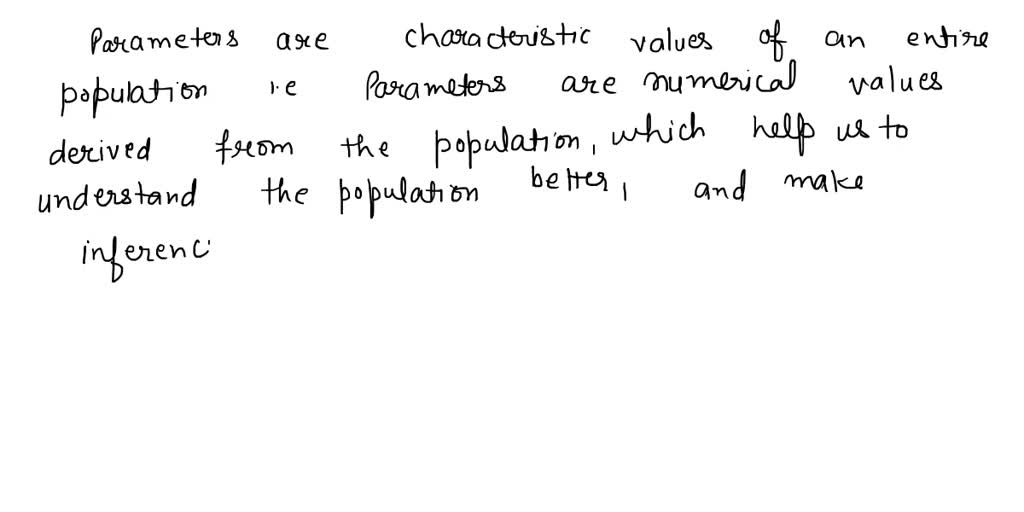 Parameters are characteristic values of an entire
population i.e Parameters are numerical values
derived from the population, which help us to
understand the population better, and make
inferenc